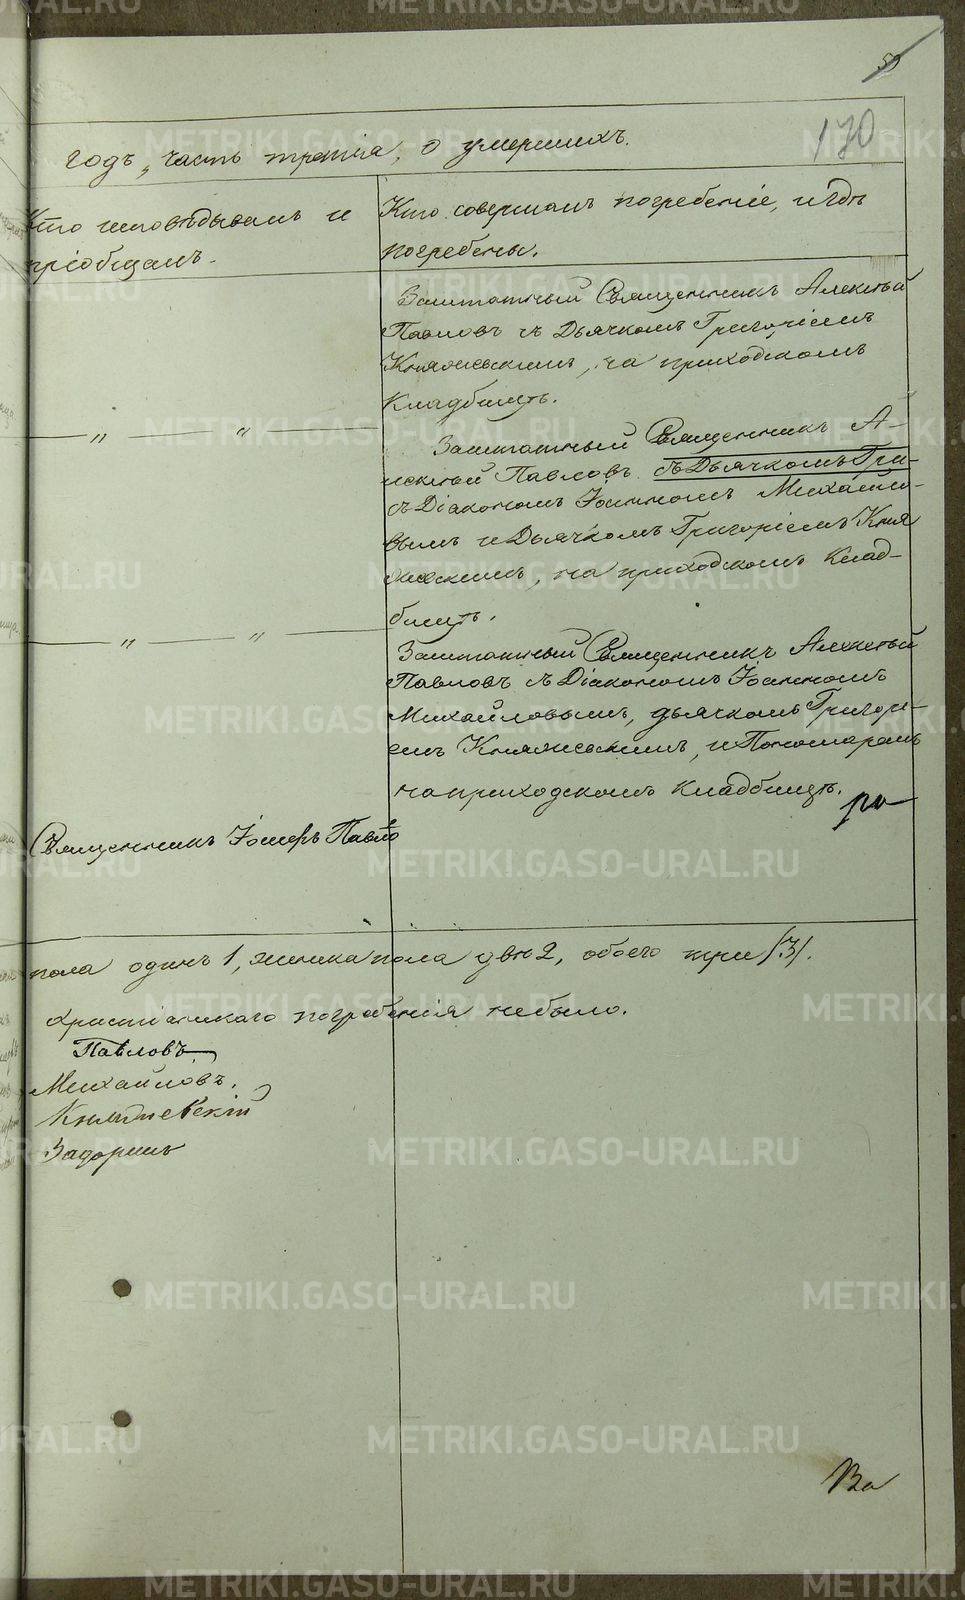 50
170
годъ, часть третія, о умершихъ.
Кто исповѣдывалъ и
пріобщалъ.
Кто совершалъ погребеніе, и гдѣ
погребены.
Заштатный Священникъ Алексѣй
Павловъ съ Дьячкомъ Григоріемъ
Княжевскимъ, на приходскомъ
Кладбищѣ.
— „ — „ —
Заштатный Священникъ А-
лексѣй Павловъ съ Дьячкомъ Гри-
съ Діакономъ Іоанномъ Михайло-
вымъ и Дьячкомъ Григоріемъ Кня
жевскимъ, на приходскомъ Клад-
бищѣ.
— „ — „ —
Заштатный Священникъ Алексѣй
Павловъ съ Діакономъ Іоанномъ
Михайловымъ, дьячкомъ Григорі-
емъ Княжевскимъ, и Пономаремъ
на приходскомъ Кладбищѣ.
ра
Священникъ Іосифъ Павло
пола одинъ 1, женска пола двѣ 2, обоего три /3/.
христіанскаго погребенія небыло.
Павловъ
Михайловъ.
Княжевскій
Задоринъ
Ва
METRIKI.GASO-URAL.RU